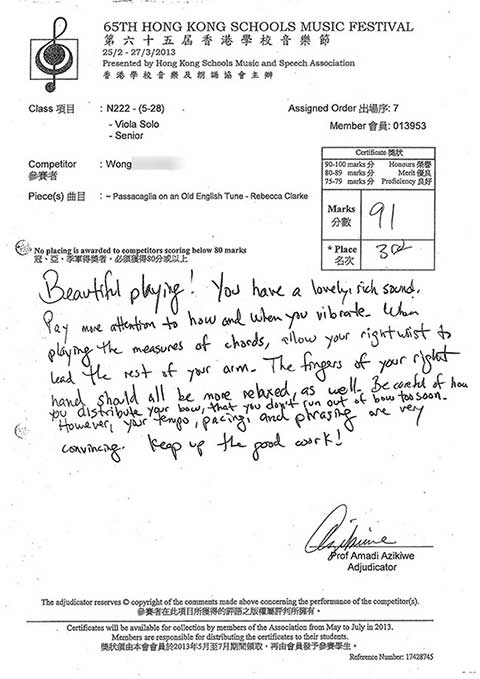 65TH HONG KONG SCHOOLS MUSIC FESTIVAL
第六十五屆香港學校音樂節
25/2 - 27/3/2013
Presented by Hong Kong Schools Music and Speech Association
香港學校音樂及朗誦協會主辦
Class 項目 : N222 - (5-28)
- Viola Solo
- Senior
Assigned Order 出場序: 7
Member 會員: 013953
Competitor : Wong
參賽者
Piece(s) 曲目 : ~ Passacaglia on an Old English Tune - Rebecca Clarke
Certificate 獎狀
90-100 marks 分 Honours 榮譽
80-89 marks 分 Merit 優良
75-79 marks 分 Proficiency 良好
Marks 91
分數
* Place 3rd
名次
No placing is awarded to competitors scoring below 80 marks
冠、亞、季軍得獎者，必須獲得80分或以上
Beautiful playing! You have a lovely, rich sound.
Pay more attention to how and when you vibrate. When
playing the measures of chords, allow your right wrist to
lead the rest of your arm. The fingers of your right
hand should all be more relaxed, as well. Be careful of how
you distribute your bow, that you don't run out of bow too soon.
However, your tempo, pacing, and phrasing are very
convincing. Keep up the good work!
Prof Amadi Azikiwe
Adjudicator
The adjudicator reserves © copyright of the comments made above concerning the performance of the competitor(s).
參賽者在此項目所獲得的評語之版權屬評判所擁有。
Certificates will be available for collection by members of the Association from May to July in 2013.
Members are responsible for distributing the certificates to their students.
獎狀須由本會會員於2013年5月至7月期間領取，再由會員發予參賽學生。
Reference Number: 17428745